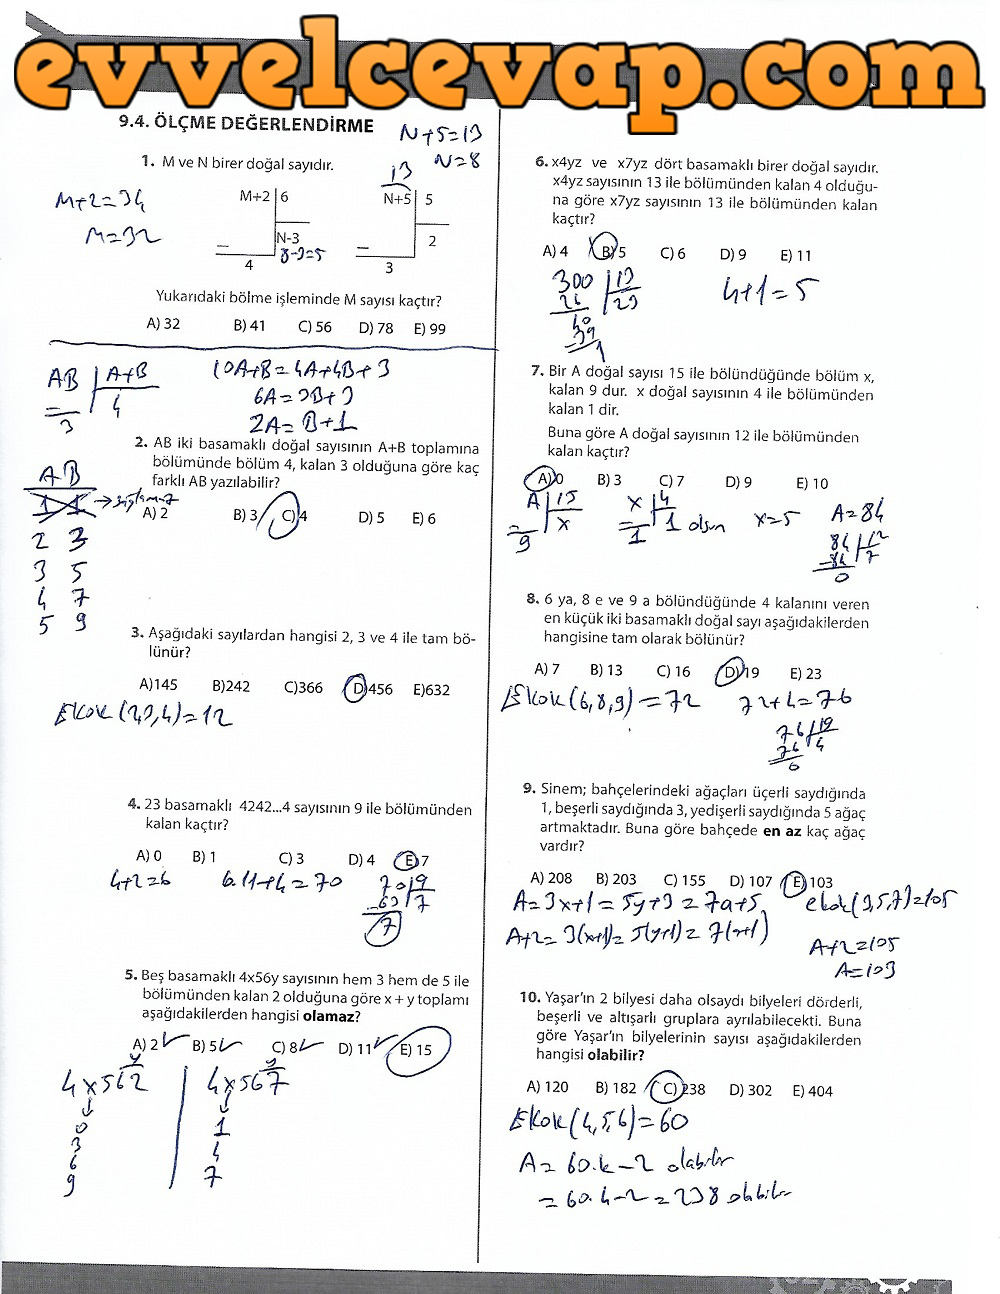 evvelcevap.com
9.4. ÖLÇME DEĞERLENDİRME
N+5=13
N=8
1. M ve N birer doğal sayıdır.
13
M+2=34
M=32
M+2 6
N-3
8-3=5
4
N+5 5
2
3
Yukarıdaki bölme işleminde M sayısı kaçtır?
A) 32 B) 41 C) 56 D) 78 E) 99
AB A+B
4
3
10A+B=4A+4B+3
6A=3B+3
2A=B+1
2. AB iki basamaklı doğal sayısının A+B toplamına
bölümünde bölüm 4, kalan 3 olduğuna göre kaç
farklı AB yazılabilir?
A) 2 B) 3 C) 4 D) 5 E) 6
AB
1 1
2 3
3 5
4 7
5 9
3. Aşağıdaki sayılardan hangisi 2, 3 ve 4 ile tam bö-
lünür?
A)145 B)242 C)366 D)456 E)632
EKOK(2,3,4)=12
4. 23 basamaklı 4242...4 sayısının 9 ile bölümünden
kalan kaçtır?
A) 0 B) 1 C) 3 D) 4 E) 7
4+2=6 6.11+4=70
70 9
63 7
7
5. Beş basamaklı 4x56y sayısının hem 3 hem de 5 ile
bölümünden kalan 2 olduğuna göre x + y toplamı
aşağıdakilerden hangisi olamaz?
A) 2 B) 5 C) 8 D) 11 E) 15
y y
4x562 4x567
0 1
3 4
6 7
9
6. x4yz ve x7yz dört basamaklı birer doğal sayıdır.
x4yz sayısının 13 ile bölümünden kalan 4 olduğu-
na göre x7yz sayısının 13 ile bölümünden kalan
kaçtır?
A) 4 B) 5 C) 6 D) 9 E) 11
300 13
26 23
40
39
1
4+1=5
7. Bir A doğal sayısı 15 ile bölündüğünde bölüm x,
kalan 9 dur. x doğal sayısının 4 ile bölümünden
kalan 1 dir.
Buna göre A doğal sayısının 12 ile bölümünden
kalan kaçtır?
A) 0 B) 3 C) 7 D) 9 E) 10
A 15
x
9
x 4
1 olsun
1
x=5
A=84
84 12
-84 7
0
8. 6 ya, 8 e ve 9 a bölündüğünde 4 kalanını veren
en küçük iki basamaklı doğal sayı aşağıdakilerden
hangisine tam olarak bölünür?
A) 7 B) 13 C) 16 D) 19 E) 23
EKOK(6,8,9)=72 72+4=76
76 19
76 4
0
9. Sinem; bahçelerindeki ağaçları üçerli saydığında
1, beşerli saydığında 3, yedişerli saydığında 5 ağaç
artmaktadır. Buna göre bahçede en az kaç ağaç
vardır?
A) 208 B) 203 C) 155 D) 107 E) 103
A=3x+1=5y+3=7a+5 ekok(3,5,7)=105
A+2=3(x+1)=5(y+1)=7(a+1)
A+2=105
A=103
10. Yaşar'ın 2 bilyesi daha olsaydı bilyeleri dörderli,
beşerli ve altışarlı gruplara ayrılabilecekti. Buna
göre Yaşar'ın bilyelerinin sayısı aşağıdakilerden
hangisi olabilir?
A) 120 B) 182 C) 238 D) 302 E) 404
EKOK(4,5,6)=60
A=60.k-2 olabilir
=60.4-2=238 olabilir